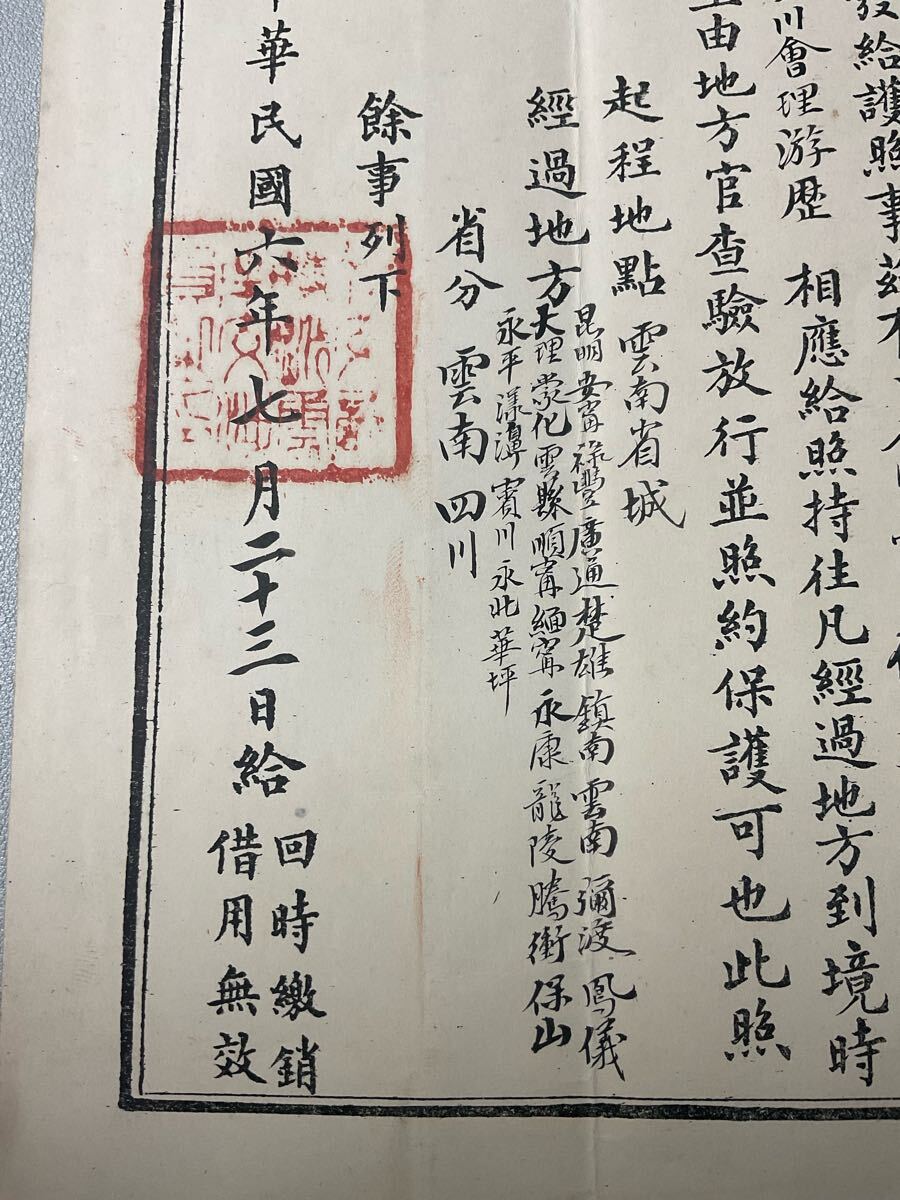 發給護照事茲
川會理游歷 相應給照持往凡經過地方到境時
由地方官查驗放行並照約保護可也此照
起程地點 雲南省城
經過地方
昆明 安甯 祿豐 廣通 楚雄 鎮南 雲南 彌渡 鳳儀
大理 蒙化 雲縣 順甯 緬甯 永康 龍陵 騰衝 保山
永平 漾濞 賓川 永北 華坪
省分 雲南 四川
餘事列下
華民國六年七月二十三日給
回時繳銷
借用無效